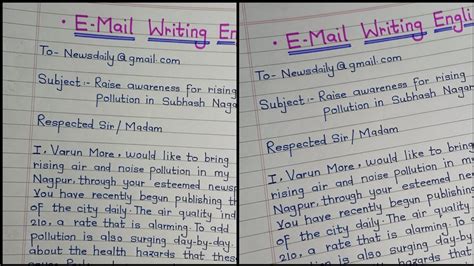 • E-Mail Writing En
To- Newsdaily@gmail.com
Subject:- Raise awareness for rising
Pollution in Subhash Nagar
Respected Sir/Madam
I, Varun More, would like to bring
rising air and noise pollution in my
Nagpur, through your esteemed newsp
You have recently begun publishing th
of the city daily. The air quality ind
210, a rate that is alarming. To add
pollution is also surging day-by-day
about the health hazards that these
• E-Mail Writing Engli
To- Newsdaily@gmail.com
Subject:- Raise awareness for rising
Pollution in Subhash Nagar
Respected Sir/Madam
I, Varun More, would like to bring
rising air and noise pollution in my
Nagpur, through your esteemed
You have recently begun publishing
of the city daily. The air quality
210, a rate that is alarming. To
pollution is also surging day-by-
about the health hazards that